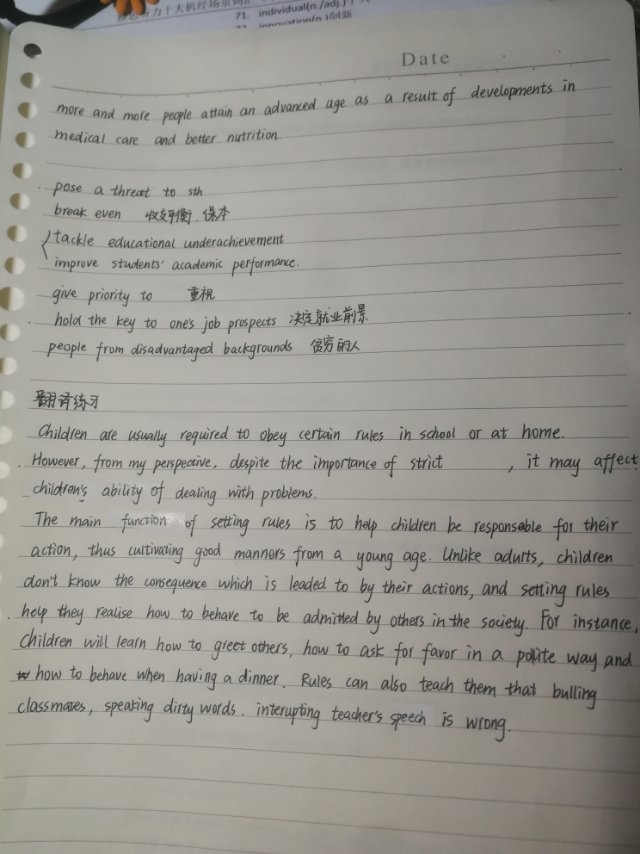 71. individual(n./adj.)
Date
more and more people attain an advanced age as a result of developments in
medical care and better nutrition.
pose a threat to sth
break even 收支平衡 保本
tackle educational underachievement
improve students' academic performance.
give priority to 重视
hold the key to one's job prospects 决定就业前景
people from disadvantaged backgrounds 贫穷的人
翻译练习
Children are usually required to obey certain rules in school or at home.
However, from my perspective, despite the importance of strict , it may affect
children's ability of dealing with problems.
The main function of setting rules is to help children be responsable for their
action, thus cultivating good manners from a young age. Unlike adults, children
don't know the consequence which is leaded to by their actions, and setting rules
help they realise how to behave to be admitted by others in the society. For instance,
children will learn how to greet others, how to ask for favor in a polite way and
how to behave when having a dinner. Rules can also teach them that bulling
classmates, speaking dirty words. interupting teacher's speech is wrong.